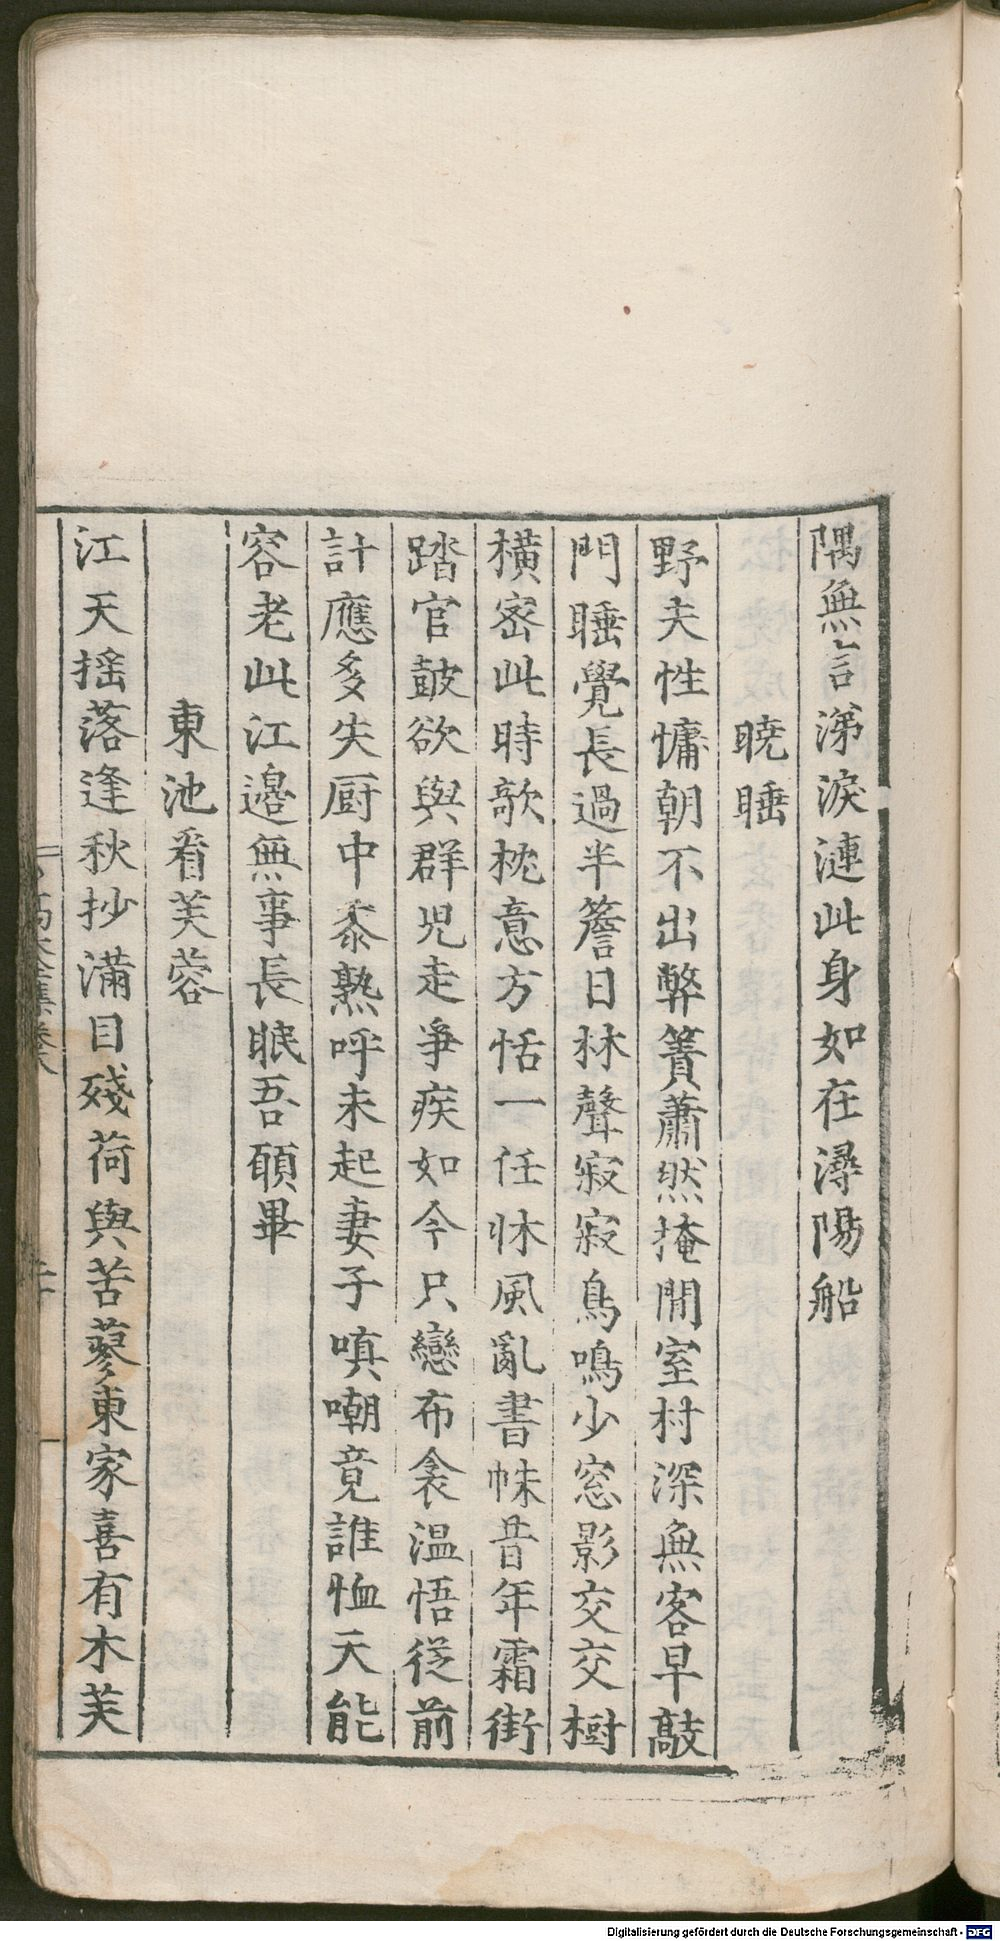 隅無言涕淚漣此身如在潯陽船
曉睡
野夫性慵朝不出弊簀蕭然掩閒室村深無客早敲
門睡覺長過半簷日林聲寂寂鳥鳴少窓影交交樹
橫密此時欹枕意方恬一任牀風亂書帙昔年霜街
踏官皷欲與群児走爭疾如今只戀布衾温悟從前
計應多失厨中黍熟呼未起妻子嗔嘲竟誰恤天能
容老此江邊無事長眠吾願畢
東池看芙蓉
江天揺落逢秋抄滿目殘荷與苦蓼東家喜有木芙
高太全集卷六